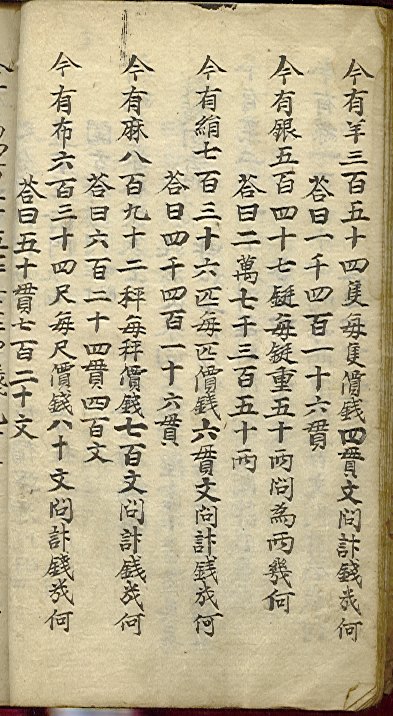 今有羊三百五十四隻每隻價錢四貫文问計錢㡬何
荅曰一千四百一十六貫
今有銀五百四十七鋌每鋌重五十两问為两幾何
荅曰二萬七千三百五十两
今有絹七百三十六匹每匹價錢六貫文问計錢㡬何
荅曰四千四百一十六貫
今有麻八百九十二秤每秤價錢七百文问計錢㡬何
荅曰六百二十四貫四百文
今有布六百三十四尺每尺價錢八十文问計錢㡬何
荅曰五十貫七百二十文